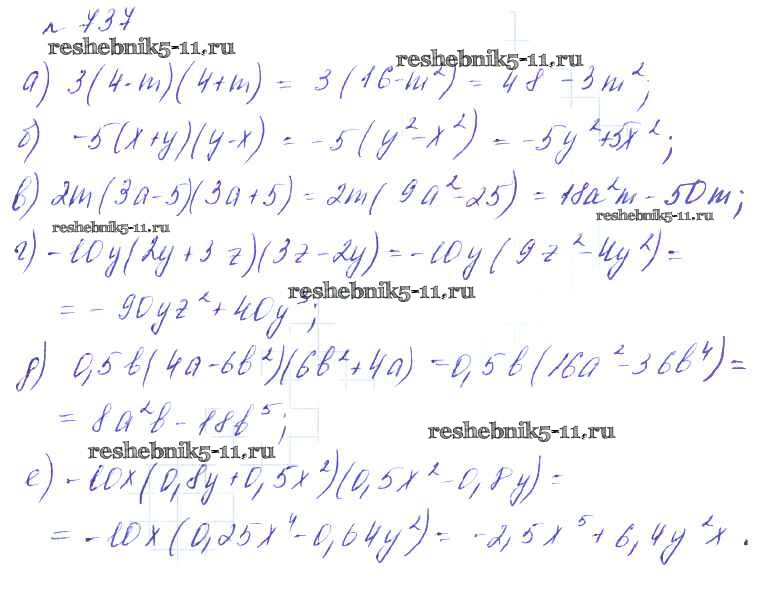 № 737
reshebnik5-11.ru
reshebnik5-11.ru
а) 3(4-m)(4+m) = 3(16-m²) = 48-3m²;
б) -5(x+y)(y-x) = -5(y²-x²) = -5y²+5x²;
в) 2m(3a-5)(3a+5) = 2m(9a²-25) = 18a²m-50m;
reshebnik5-11.ru
reshebnik5-11.ru
г) -10y(2y+3z)(3z-2y) = -10y(9z²-4y²) =
reshebnik5-11.ru
= -90yz²+40y³;
д) 0,5b(4a-6b²)(6b²+4a) = 0,5b(16a²-36b⁴) =
= 8a²b-18b⁵;
reshebnik5-11.ru
reshebnik5-11.ru
е) -10x(0,8y+0,5x²)(0,5x²-0,8y) =
= -10x(0,25x⁴-0,64y²) = -2,5x⁵+6,4y²x.